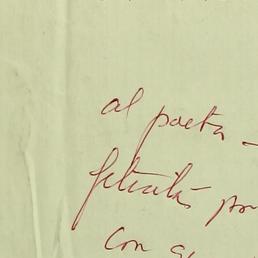 al poeta -
felicitá por
con